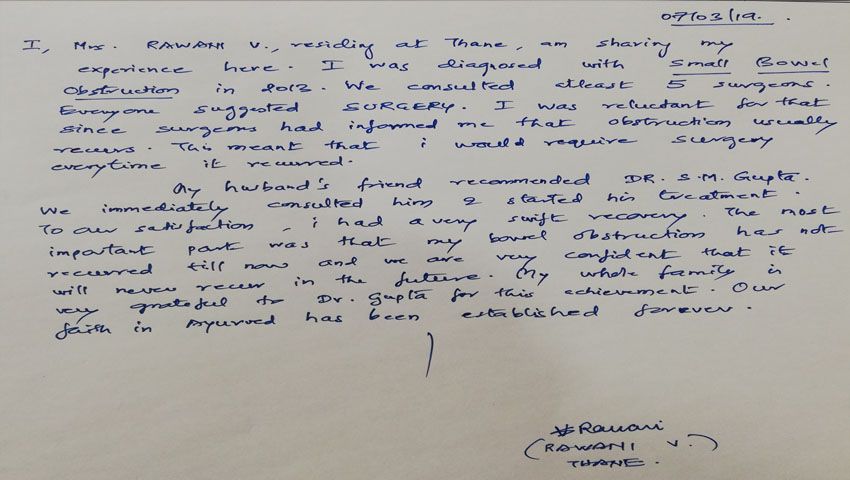 07/03/19.
I, Mrs. RAWANI V., residing at Thane, am sharing my
experience here. I was diagnosed with Small Bowel
Obstruction in 2012. We consulted atleast 5 surgeons.
Everyone suggested SURGERY. I was reluctant for that
since surgeons had informed me that obstruction usually
recurs. This meant that i would require surgery
everytime it recurred.
My husband's friend recommended DR. S.M. Gupta.
We immediately consulted him & started his treatment.
To our satisfaction, i had a very swift recovery. The most
important part was that my bowel obstruction has not
recurred till now and we are very confident that it
will never recur in the future. My whole family is
very grateful to Dr. Gupta for this achievement. Our
faith in Ayurved has been established forever.
VRawani
(RAWANI V.)
THANE.